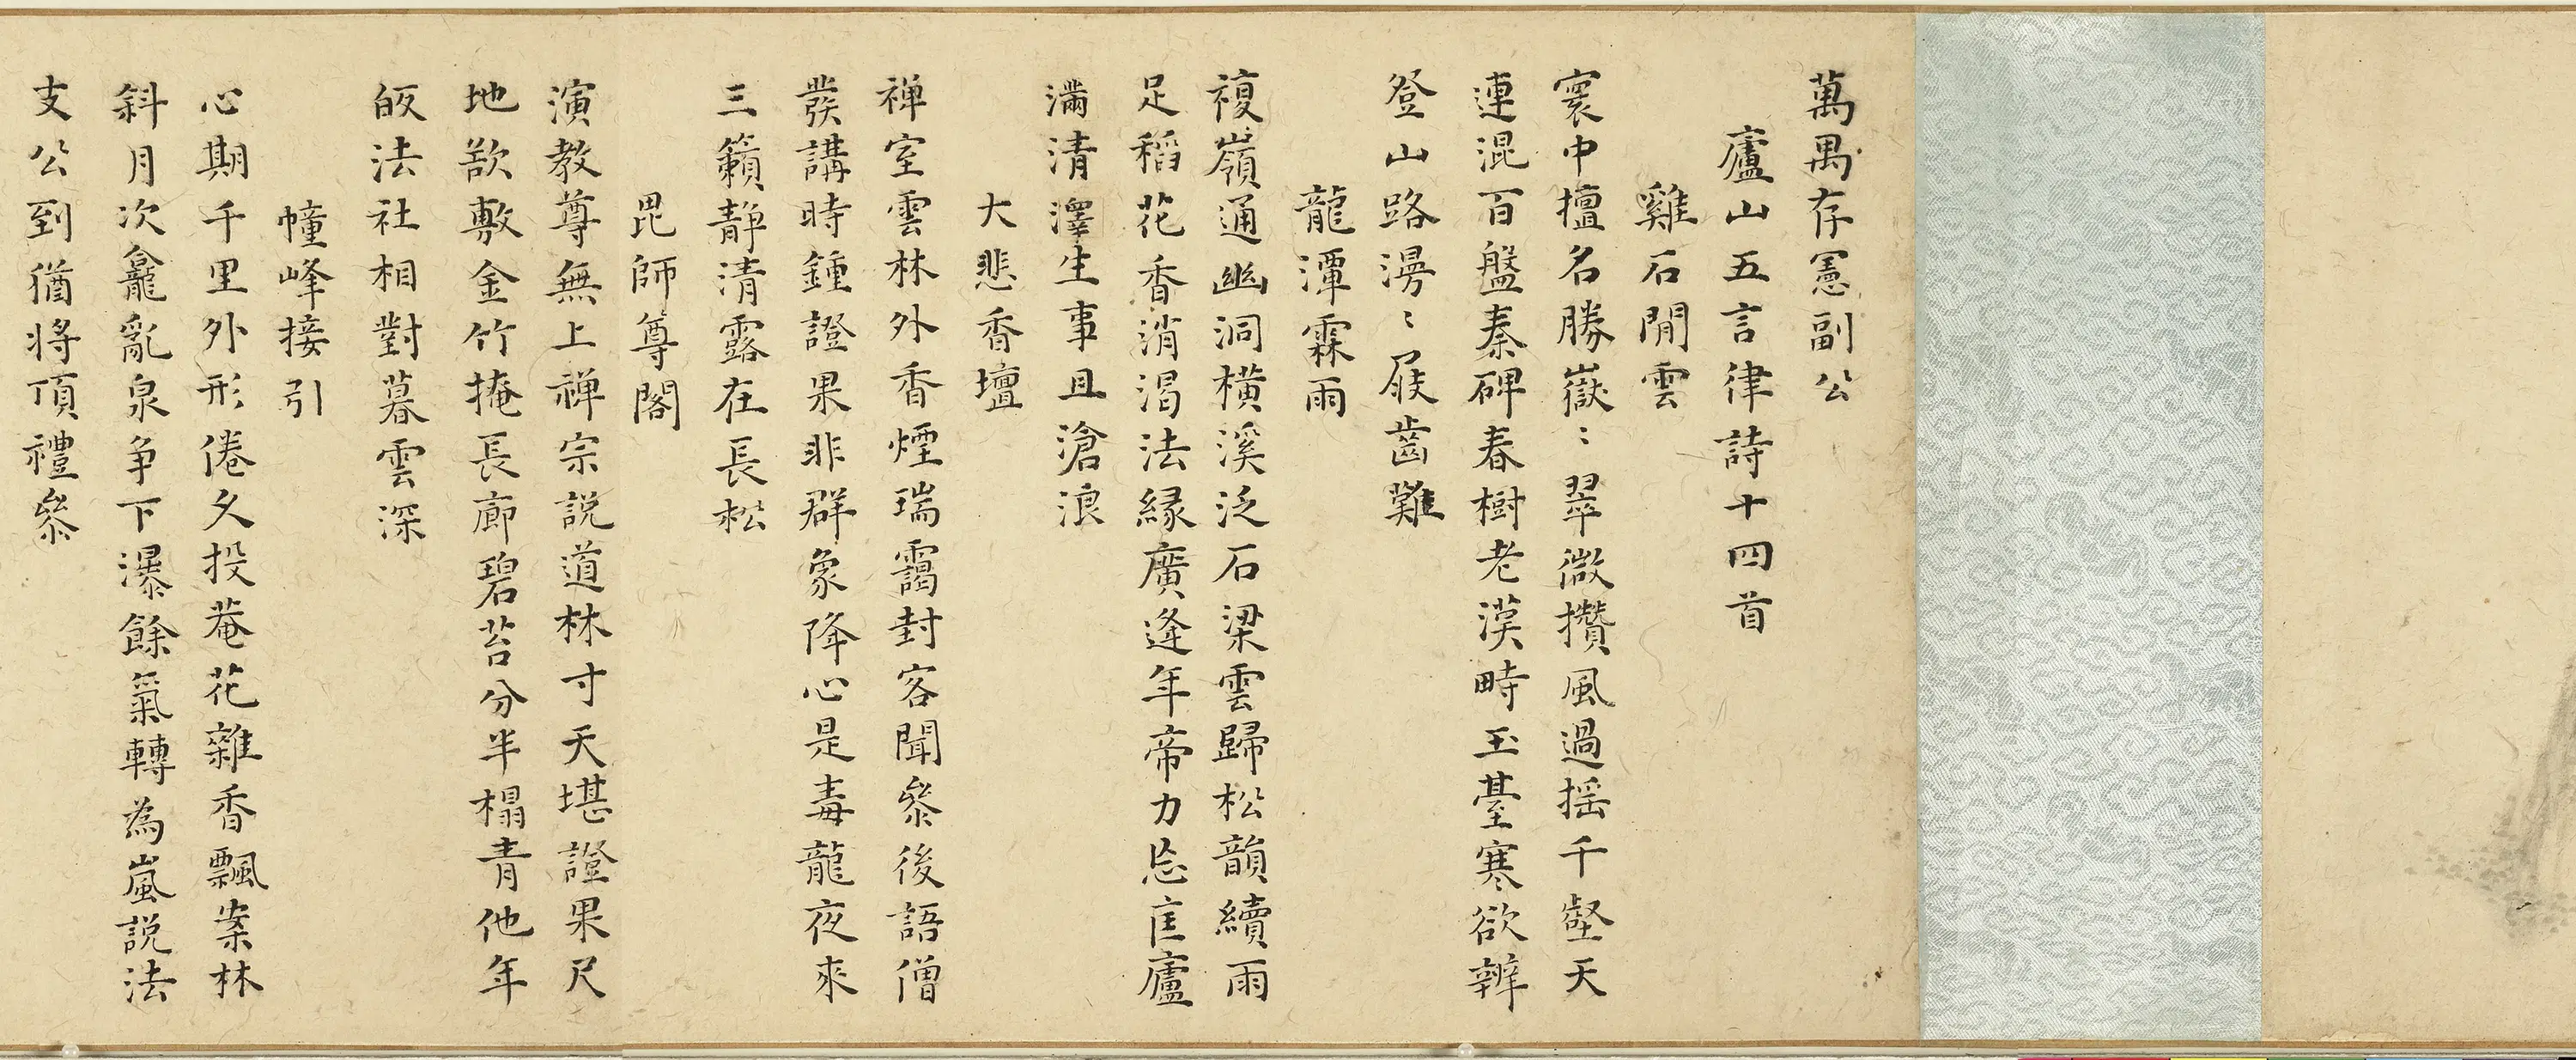 萬禺存憲副公
廬山五言律詩十四首
雞石閒雲
寰中擅名勝嶽〻翠微攢風過搖千壑天
連混百盤秦碑春樹老漢畤玉臺寒欲辨
登山路漫〻屐齒難
龍潭霖雨
複嶺通幽洞橫溪泛石梁雲歸松韻續雨
足稻花香消渴法緣廣逢年帝力忘匡廬
滿清澤生事且滄浪
大悲香壇
禅室雲林外香煙瑞靄封客聞參後語僧
發講時鍾證果非群象降心是毒龍夜來
三籟靜清露在長松
毘師尊閣
演教尊無上禅宗説道林寸天堪證果尺
地欲敷金竹掩長廊碧苔分半榻青他年
皈法社相對暮雲深
幢峰接引
心期千里外形倦久投菴花雜香飄案林
斜月次龕亂泉争下瀑餘氣轉為嵐説法
支公到猶将頂禮參